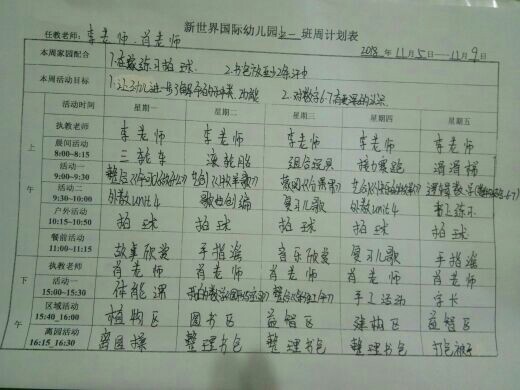 新世界国际幼儿园上一班周计划表
任教老师：李老师、肖老师
2018年11月5日——11月9日
本周家园配合 1.在家练习拍球. 2.书包放
本周活动目标 1.让幼儿进一步了解 的种类、功能 2.对数字6-7有更深的认识
活动时间 星期一 星期二 星期三 星期四 星期五
上午
执教老师 李老师 李老师 李老师 李老师 李老师
晨间活动 8:00~8:15 三轮车 滚轮胎 组合玩具 接力赛跑 滑滑梯
活动一 9:00~9:30
活动二 9:30~10:00 外教unit4 歌曲创编 复习儿歌 外教unit4 书上练习
户外活动 10:15~10:50 拍球 拍球 拍球 拍球 拍球
餐前活动 11:00~11:15 故事欣赏 手指谣 音乐欣赏 复习儿歌 手指谣
下午
执教老师 肖老师 肖老师 肖老师 肖老师 肖老师
活动一 15:00~15:30 体能课 手工活动
区域活动 15:40_16:00 植物区 图书区 益智区 建构区 益智区
离园活动 16:15_16:30 离园操 整理书包 整理书包 整理书包